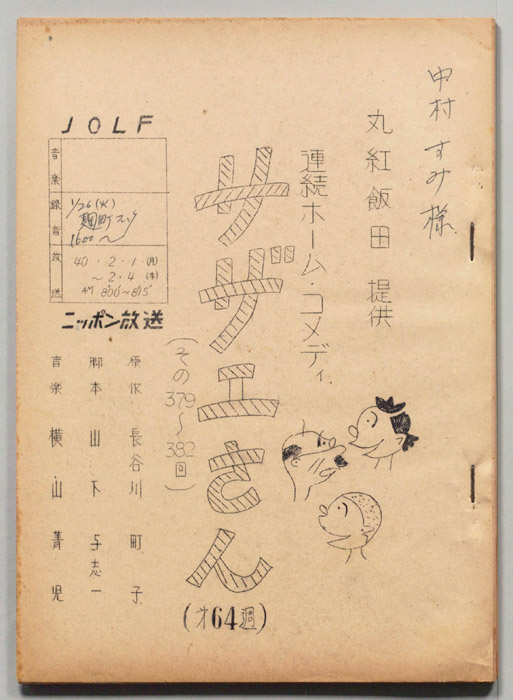 中村すみ様
丸紅飯田 提供
連続ホーム・コメディ
サザエさん
(その379〜382回)
(才64週)
JOLF
音楽
録音
1/26(火)
麹町スタ
1600〜
放送
40・2・1(月)
〜2・4(木)
AM 800'〜815'
ニッポン放送
原作 長谷川町子
脚本 山下与志一
音楽 横山菁児